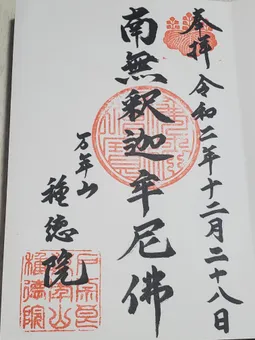 奉拝 令和二年十二月二十八日
南無釈迦牟尼佛
万年山
種徳院
種德院